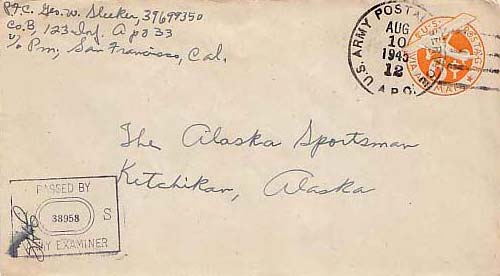 Pfc. Geo. W. Sleeker, 39699350
Co. B, 123 Inf. Apo 33
c/o Pm, San Francisco, Cal.
U.S. ARMY POSTAL SERVICE
AUG
10
1945
12
A.P.O.
U.S. POSTAGE
VIA AIR MAIL
The Alaska Sportsman
Ketchikan, Alaska
PASSED BY
38958 S
ARMY EXAMINER